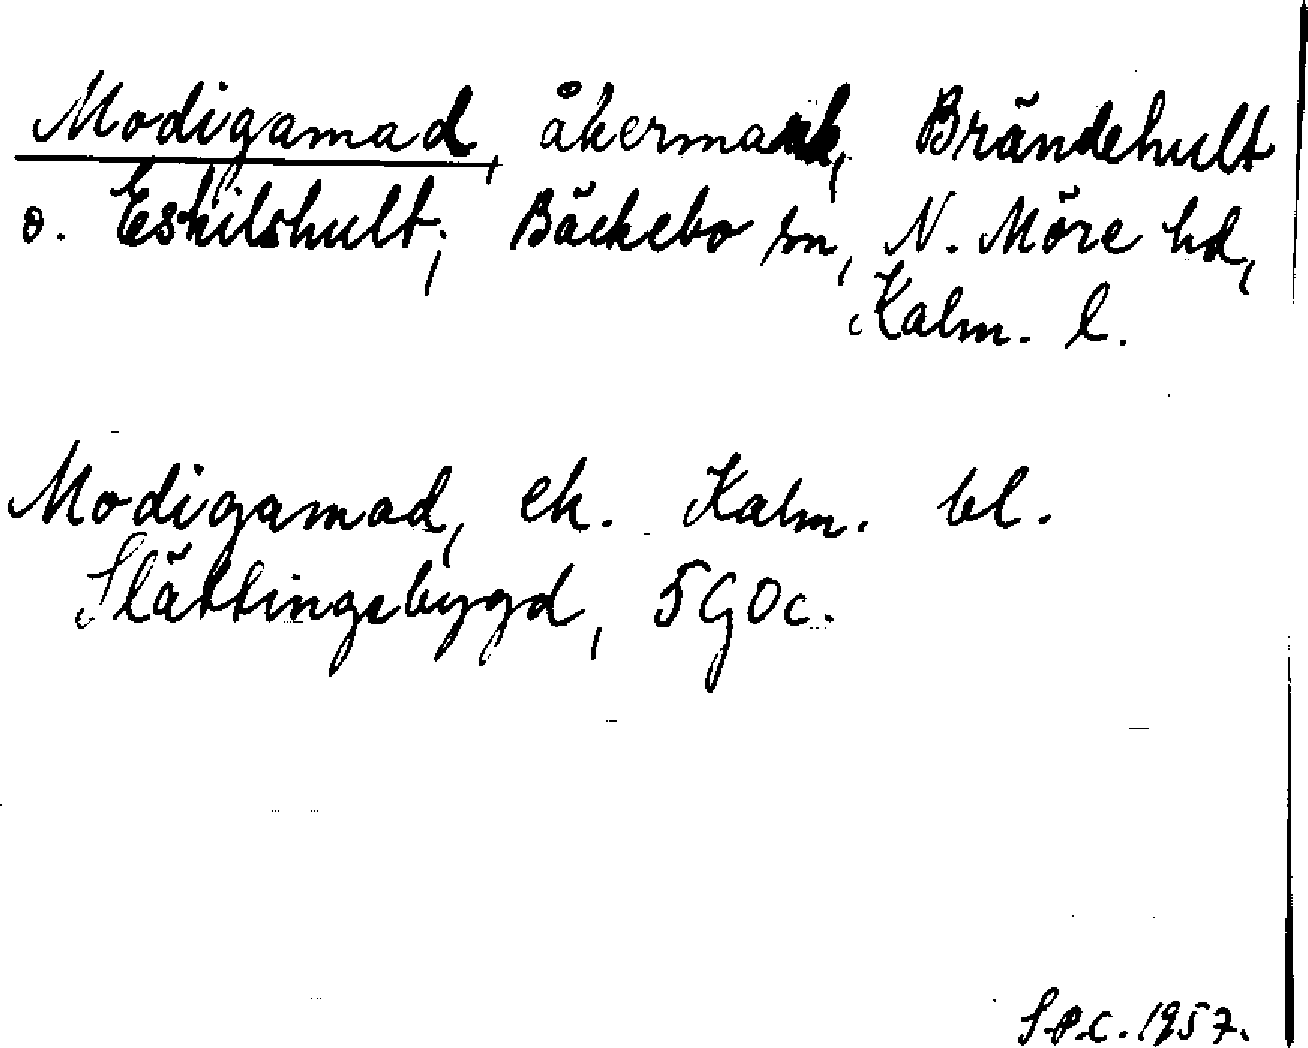 Modigamad, åkermark, Brändehult
o. Eskilshult; Bäckebo sn, N. Möre hd,
Kalm. l.
Modigamad, ek. Kalm. bl.
Slättingebygd, 5GOc.
S.P.C. 1957.